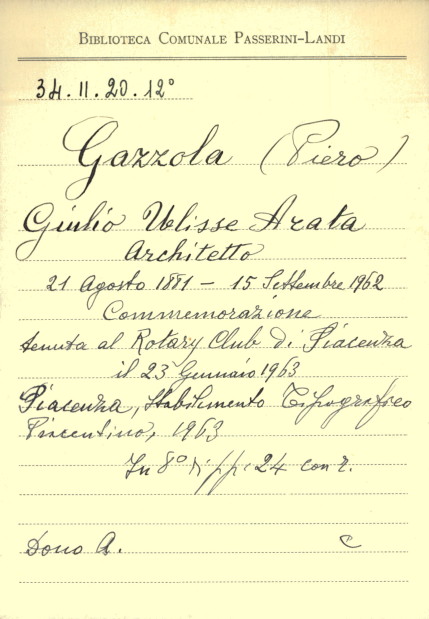 BIBLIOTECA COMUNALE PASSERINI-LANDI
34.II.20.12°
Gazzola (Piero)
Giulio Ulisse Arata
Architetto
21 Agosto 1881 - 15 Settembre 1962
Commemorazione
tenuta al Rotary Club di Piacenza
il 23 Gennaio 1963
Piacenza, Stabilimento Tipografico
Piacentino, 1963
In 8° di pp. 24 con r.
Dono A. C